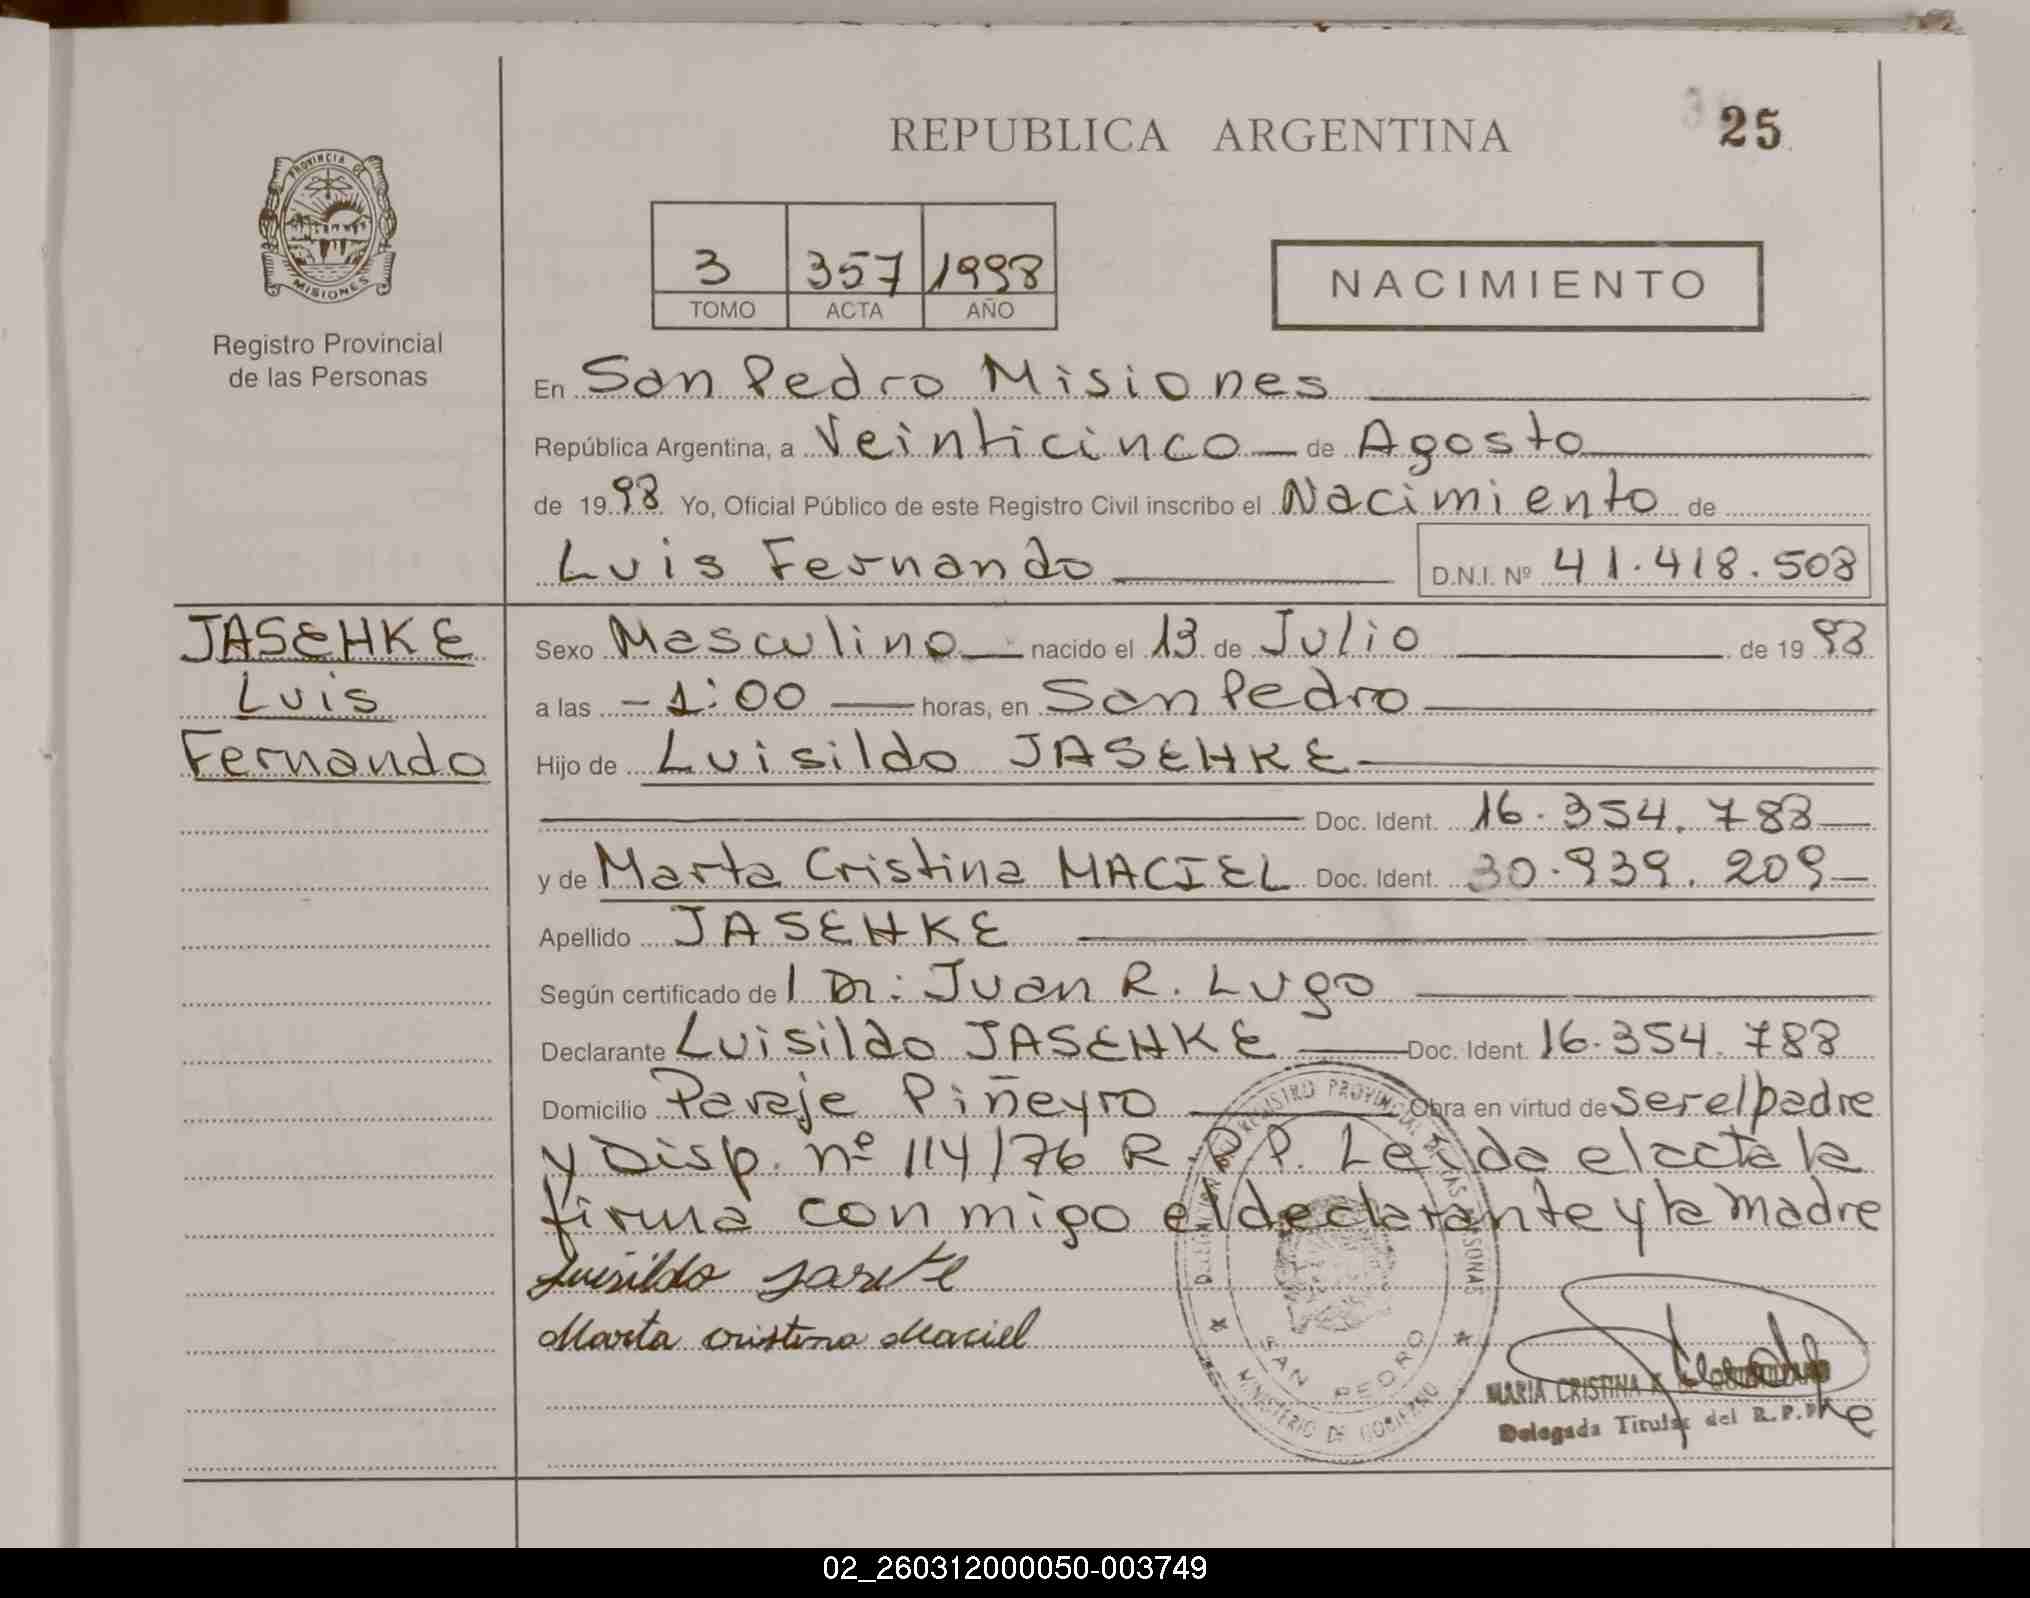 REPUBLICA ARGENTINA
25
PROVINCIA DE
MISIONES
Registro Provincial
de las Personas
3 357 1998
TOMO ACTA AÑO
NACIMIENTO
En San Pedro Misiones
República Argentina, a Veinticinco de Agosto
de 1998 Yo, Oficial Público de este Registro Civil inscribo el Nacimiento de
Luis Fernando D.N.I. Nº 41.418.508
JASEHKE
Luis
Fernando
Sexo Masculino nacido el 13 de Julio de 1998
a las - 1:00 horas, en San Pedro
Hijo de Luisildo JASEHKE
Doc. Ident. 16.354.788
y de Marta Cristina MACIEL Doc. Ident. 30.939.209
Apellido JASEHKE
Según certificado de l Dr: Juan R. Lugo
Declarante Luisildo JASEHKE Doc. Ident. 16.354.788
Domicilio Paraje Piñeyro Obra en virtud de ser el padre
y Disp. nº 114/76 R.P.P. Leida el acta la
firma con migo el declarante y la madre
Luisildo
Marta Cristina Maciel
REGISTRO PROVINCIAL DE LAS PERSONAS
SAN PEDRO
MINISTERIO DE GOBIERNO
MARIA CRISTINA
Delegada Titular del R.P.P.
02_260312000050-003749